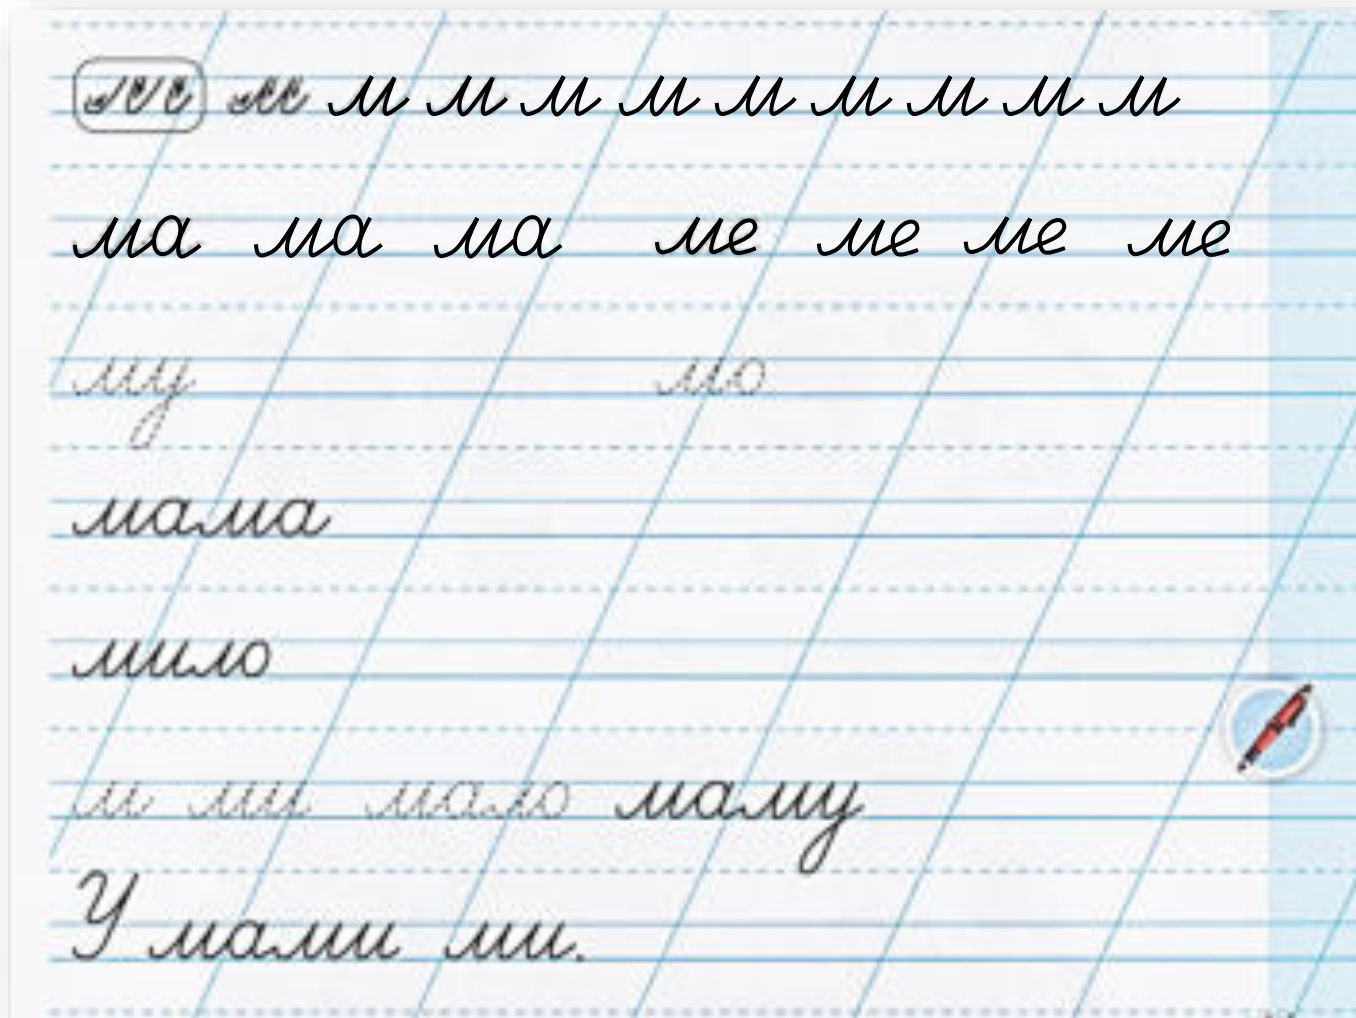 м м м м м м м м м м м
ма ма ма ме ме ме ме
му мо
мама
мило
м ми мало маму
У мами ми.